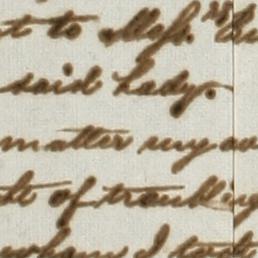 t to Mess.rs
said Lady.
matter my ow
of troubling
whom I took